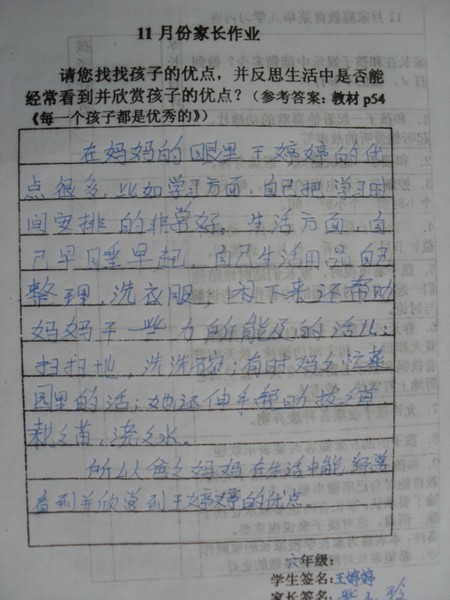 11月份家长作业
请您找找孩子的优点，并反思生活中是否能
经常看到并欣赏孩子的优点？（参考答案：教材p54
《每一个孩子都是优秀的》）
在妈妈的眼里王婷婷的优
点很多，比如学习方面，自己把学习时
间安排的非常好。生活方面，自
己早日睡早起，自己生活用品自己
整理，洗衣服，闲下来还帮助
妈妈干一些力所能及的活儿：
扫扫地，洗洗碗；有时妈之忙菜
园里的活；她还伸手帮助拔之苗
栽之苗，浇之水。
所以爸之妈妈在生活中能经常
看到并欣赏到王婷婷的优点。
六年级：
学生签名：王婷婷
家长签名：